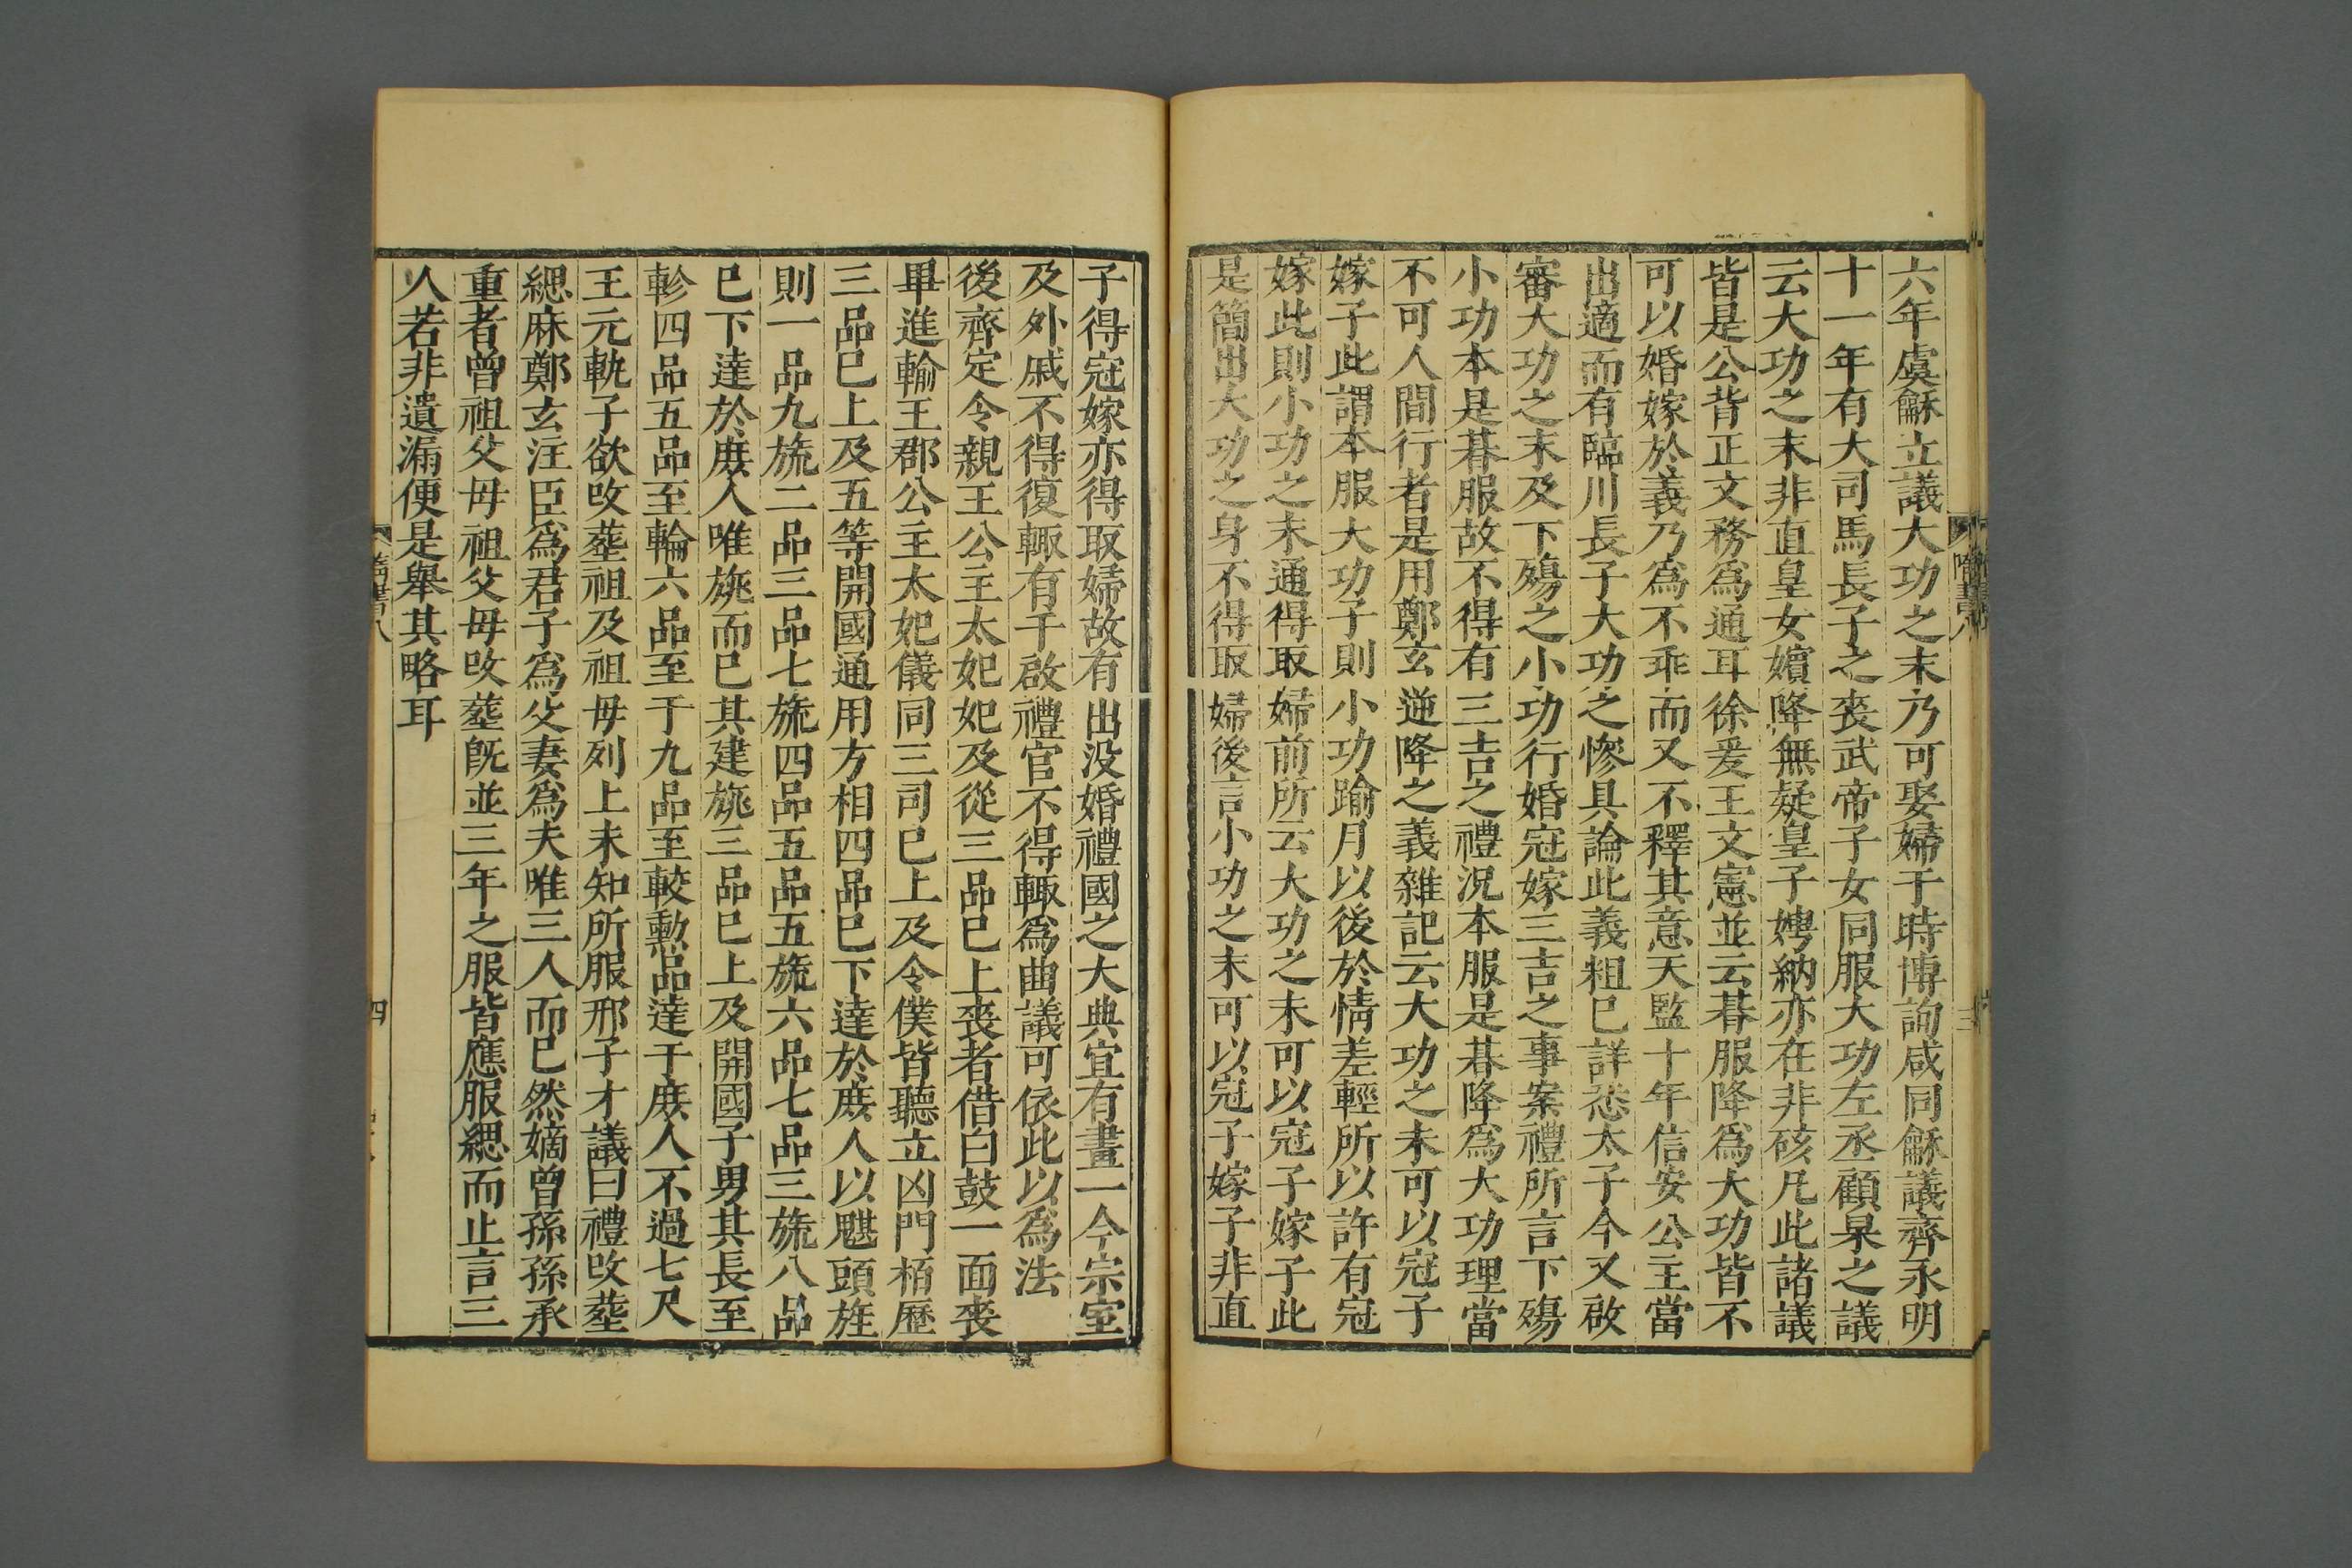 六年虞龢立議大功之末乃可娶婦于時博詢咸同龢議齊永明
十一年有大司馬長子之喪武帝子女同服大功左丞顧杲之議
云大功之末非直皇女嬪降無疑皇子娉納亦在非硋凡此諸議
皆是公背正文務爲通耳徐爰王文憲並云朞服降爲大功皆不
可以婚嫁於義乃爲不乖而又不釋其意天監十年信安公主當
出適而有臨川長子大功之慘具論此義粗已詳悉太子今又啟
審大功之末及下殤之小功行婚冠嫁三吉之事案禮所言下殤
小功本是朞服故不得有三吉之禮況本服是朞降爲大功理當
不可人間行者是用鄭玄逆降之義雜記云大功之末可以冠子
嫁子此謂本服大功子則小功踰月以後於情差輕所以許有冠
嫁此則小功之末通得取婦前所云大功之末可以冠子嫁子此
是簡出大功之身不得取婦後言小功之末可以冠子嫁子非直
子得冠嫁亦得取婦故有出没婚禮國之大典宜有畫一今宗室
及外戚不得復輒有干啟禮官不得輒爲曲議可依此以爲法
後齊定令親王公主太妃妃及從三品已上喪者借白鼓一面喪
畢進輸王郡公主太妃儀同三司已上及令僕皆聽立凶門栢歷
三品已上及五等開國通用方相四品已下達於庶人以魌頭旌
則一品九旒二品三品七旒四品五品五旒六品七品三旒八品
已下達於庶人唯旐而已其建旐三品已上及開國子男其長至
軫四品五品至輪六品至于九品至較勳品達于庶人不過七尺
王元軌子欲改葬祖及祖母列上未知所服邢子才議曰禮改葬
緦麻鄭玄注臣爲君子爲父妻爲夫唯三人而已然嫡曾孫孫承
重者曾祖父母祖父母改葬旣並三年之服皆應服緦而止言三
人若非遺漏便是舉其略耳
隋書八
四